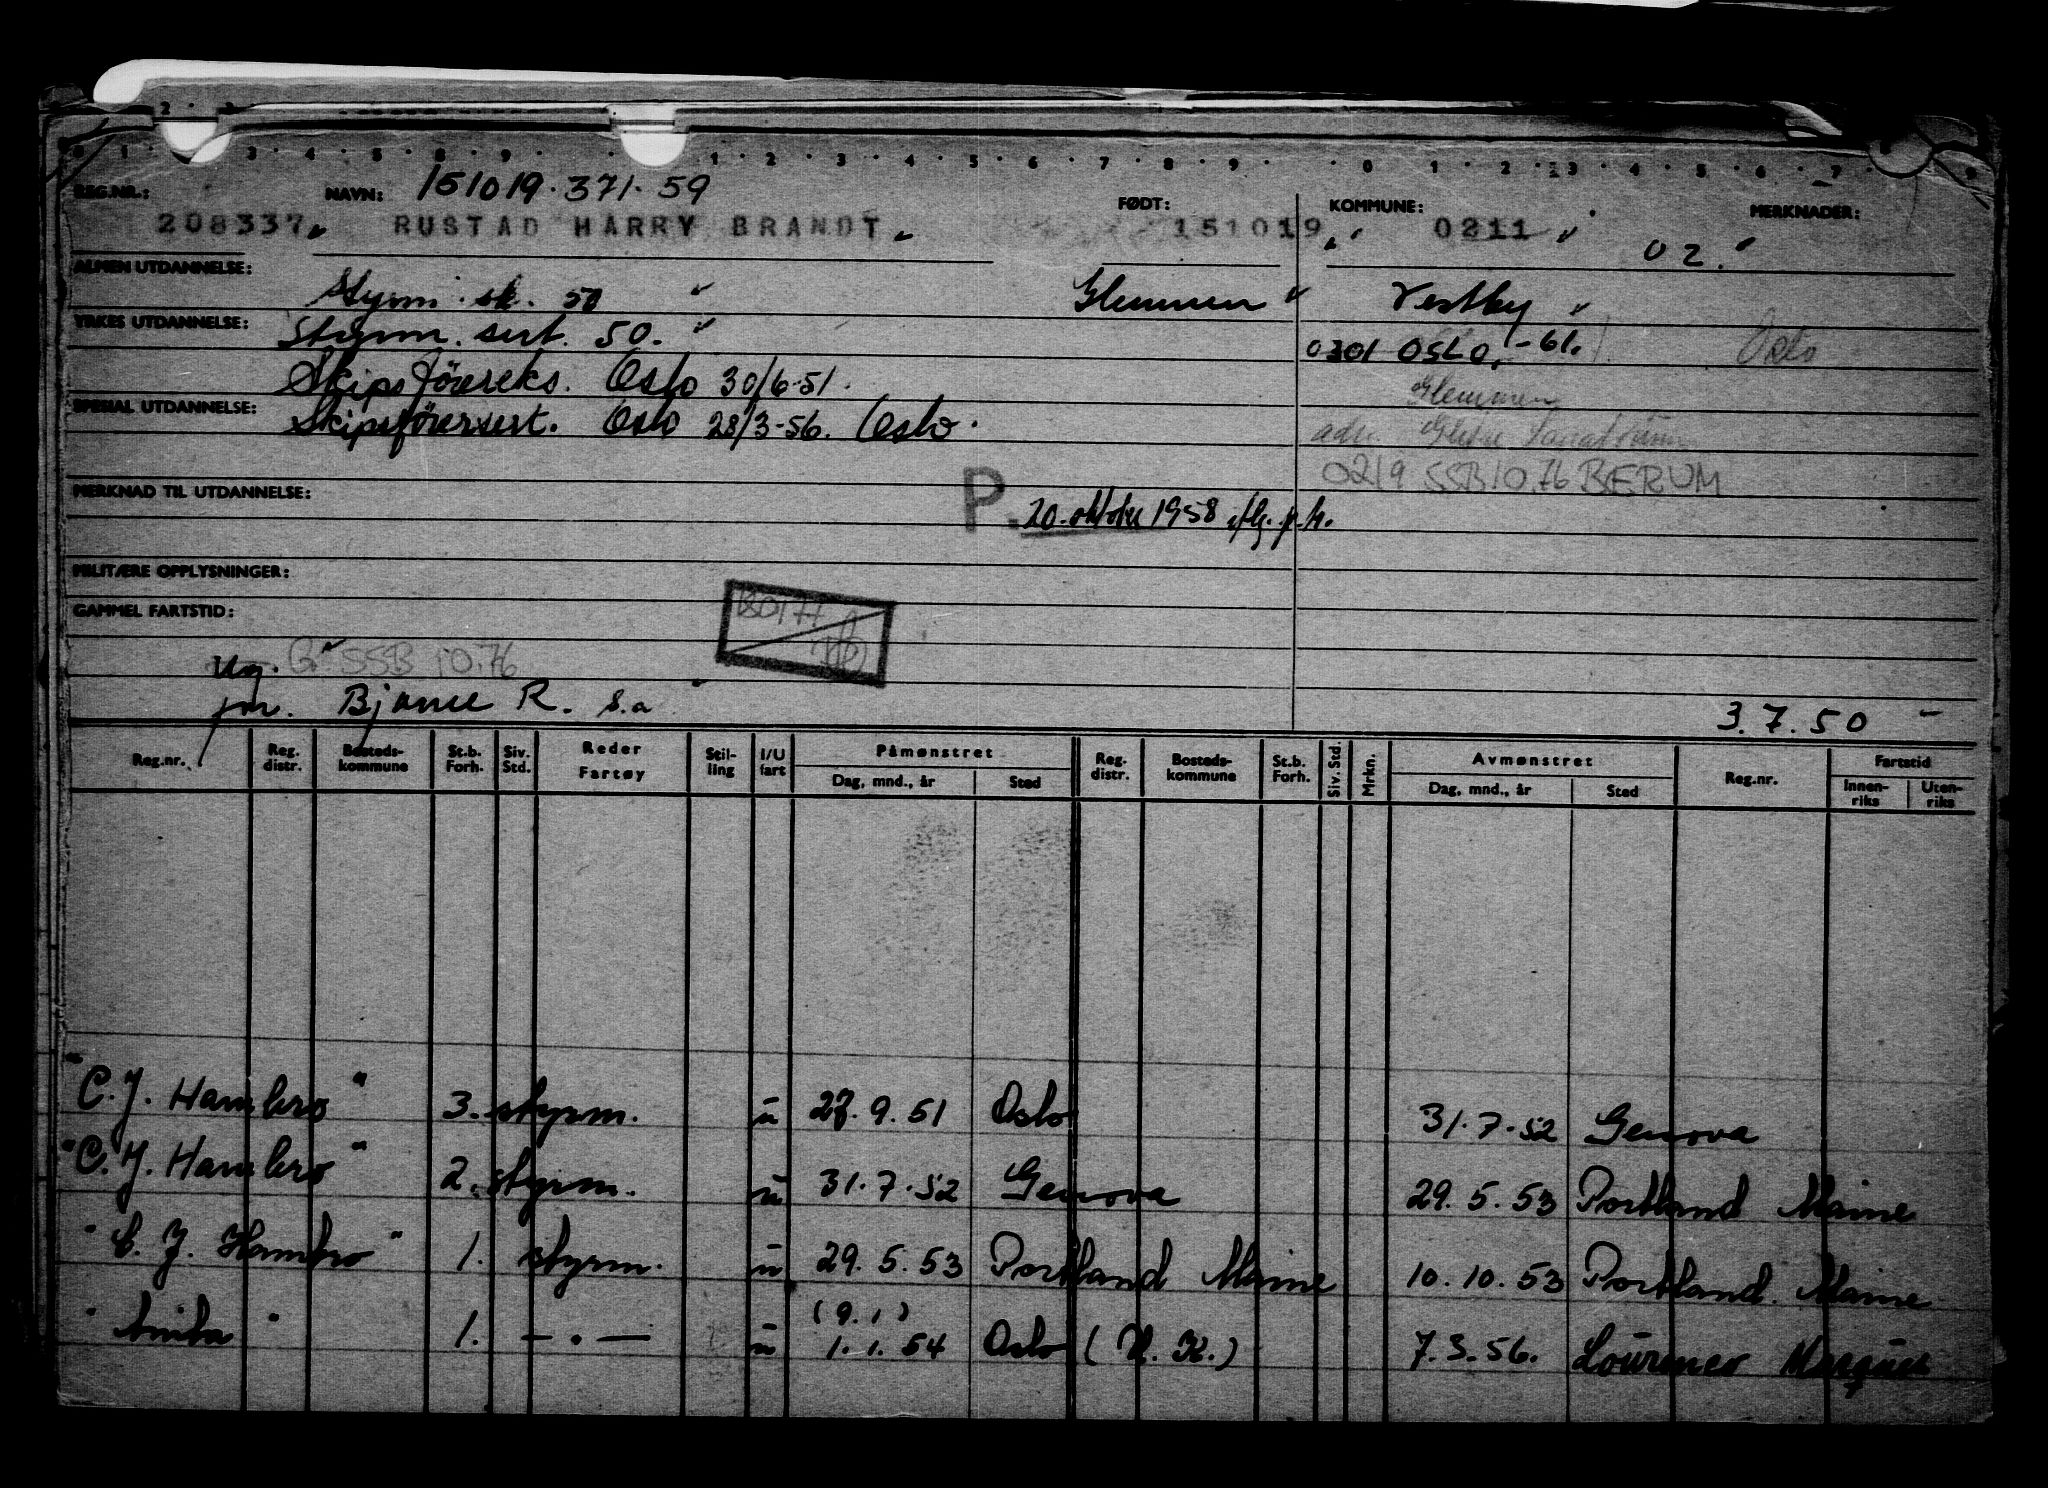 REG.NR.: NAVN: 151019.371.59 FØDT: KOMMUNE: MERKNADER:
208337 RUSTAD HARRY BRANDT 151019 0211 02.
ALMEN UTDANNELSE:
Styrm. sk. 50 Glemmen Vestby
YRKES UTDANNELSE: Styrm. sert. 50. 0301 OSLO, -61. Oslo
Skipsföereks. Oslo 30/6-51. Glemmen
SPESIAL UTDANNELSE: Skipsförersert. Oslo 28/3-56. Oslo. adr.
0219 SSB 10.76 BÆRUM
MERKNAD TIL UTDANNELSE:
P. 20. oktober 1958
MILITÆRE OPPLYSNINGER:
GAMMEL FARTSTID:
Ug. G. SSB 10.76
fm. Bjarne R. s.a 3.7.50
Reg.nr. Reg. distr. Bosteds-kommune St.b. Forh. Siv. Std. Reder Fartøy Stil-ling I/U fart Påmønstret Dag, mnd., år Sted Reg. distr. Bosteds-kommune St.b. Forh. Siv. Std. Mrkn. Avmønstret Dag, mnd., år Sted Reg.nr. Fartstid Innen-riks Uten-riks
"C.J. Hambro" 3. styrm. u 27.9.51 Oslo 31.7.52 Genova
"C.J. Hambro" 2. styrm. u 31.7.52 Genova 29.5.53 Portland Maine
"C. J. Hambro" 1. styrm. u 29.5.53 Portland Maine 10.10.53 Portland. Maine
(9.1)
"Anita" 1. — . — u 1.1.54 Oslo (U.K.) 7.3.56. Lourenco Marques